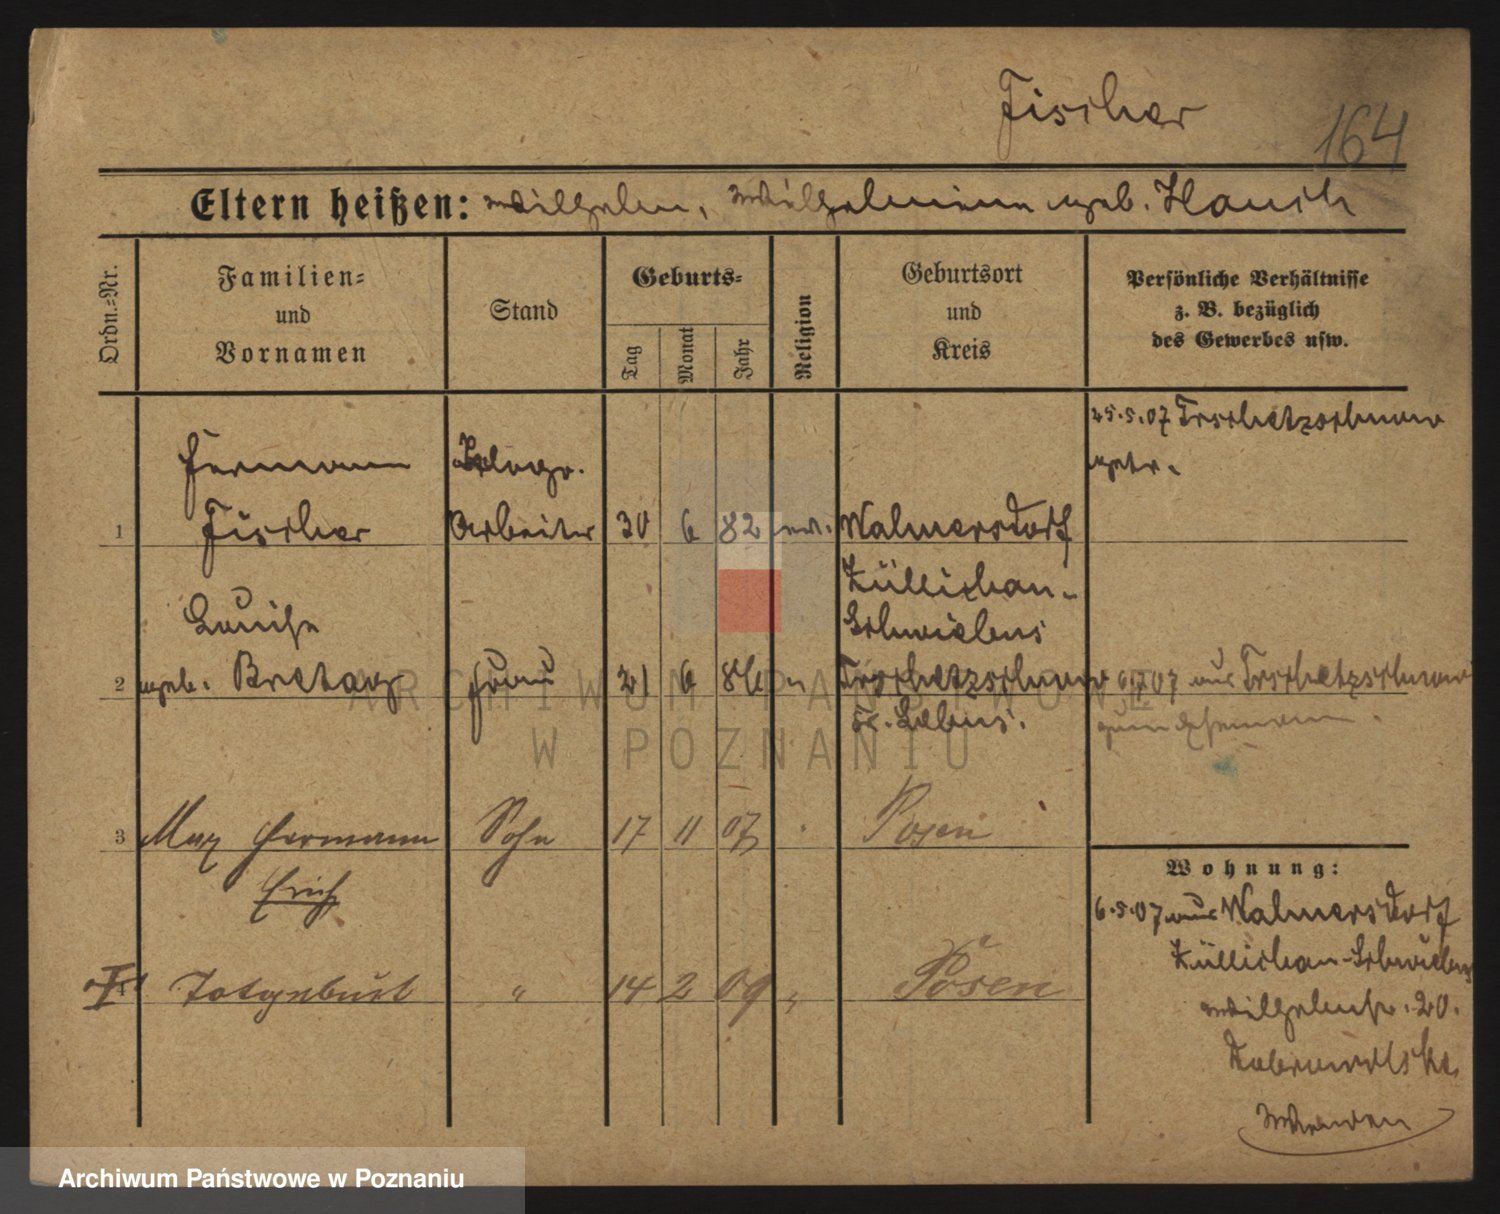 Fischer
164
Eltern heißen: Wilhelm, Wilhelmine geb. Hauch
Ordn.=Nr.
Familien=
und
Vornamen
Stand
Geburts=
Tag
Monat
Jahr
Religion
Geburtsort
und
Kreis
Persönliche Verhältnisse
z. B. bezüglich
des Gewerbes usw.
25.5.07 Tschetzschnow
getr.
Hermann
Telegr.
1 Fischer Arbeiter 30 6 82 ev. Walmersdorf
Züllichau-
Schwiebus
Louise
2 geb. Bretag Frau 21 6 86 " Tschetzschnow
Kr. Lebus.
07 aus Tschetzschnow
zum Ehemann.
3 Max Hermann Sohn 17 11 07 Posen
Erich
4 Totgeburt " 14 2 09 " Posen
Wohnung:
6.5.07 aus Walmersdorf
Züllichau-Schwiebus
Wilhelmstr. 20.
ARCHIWUM PAŃSTWOWE
W POZNANIU
Archiwum Państwowe w Poznaniu